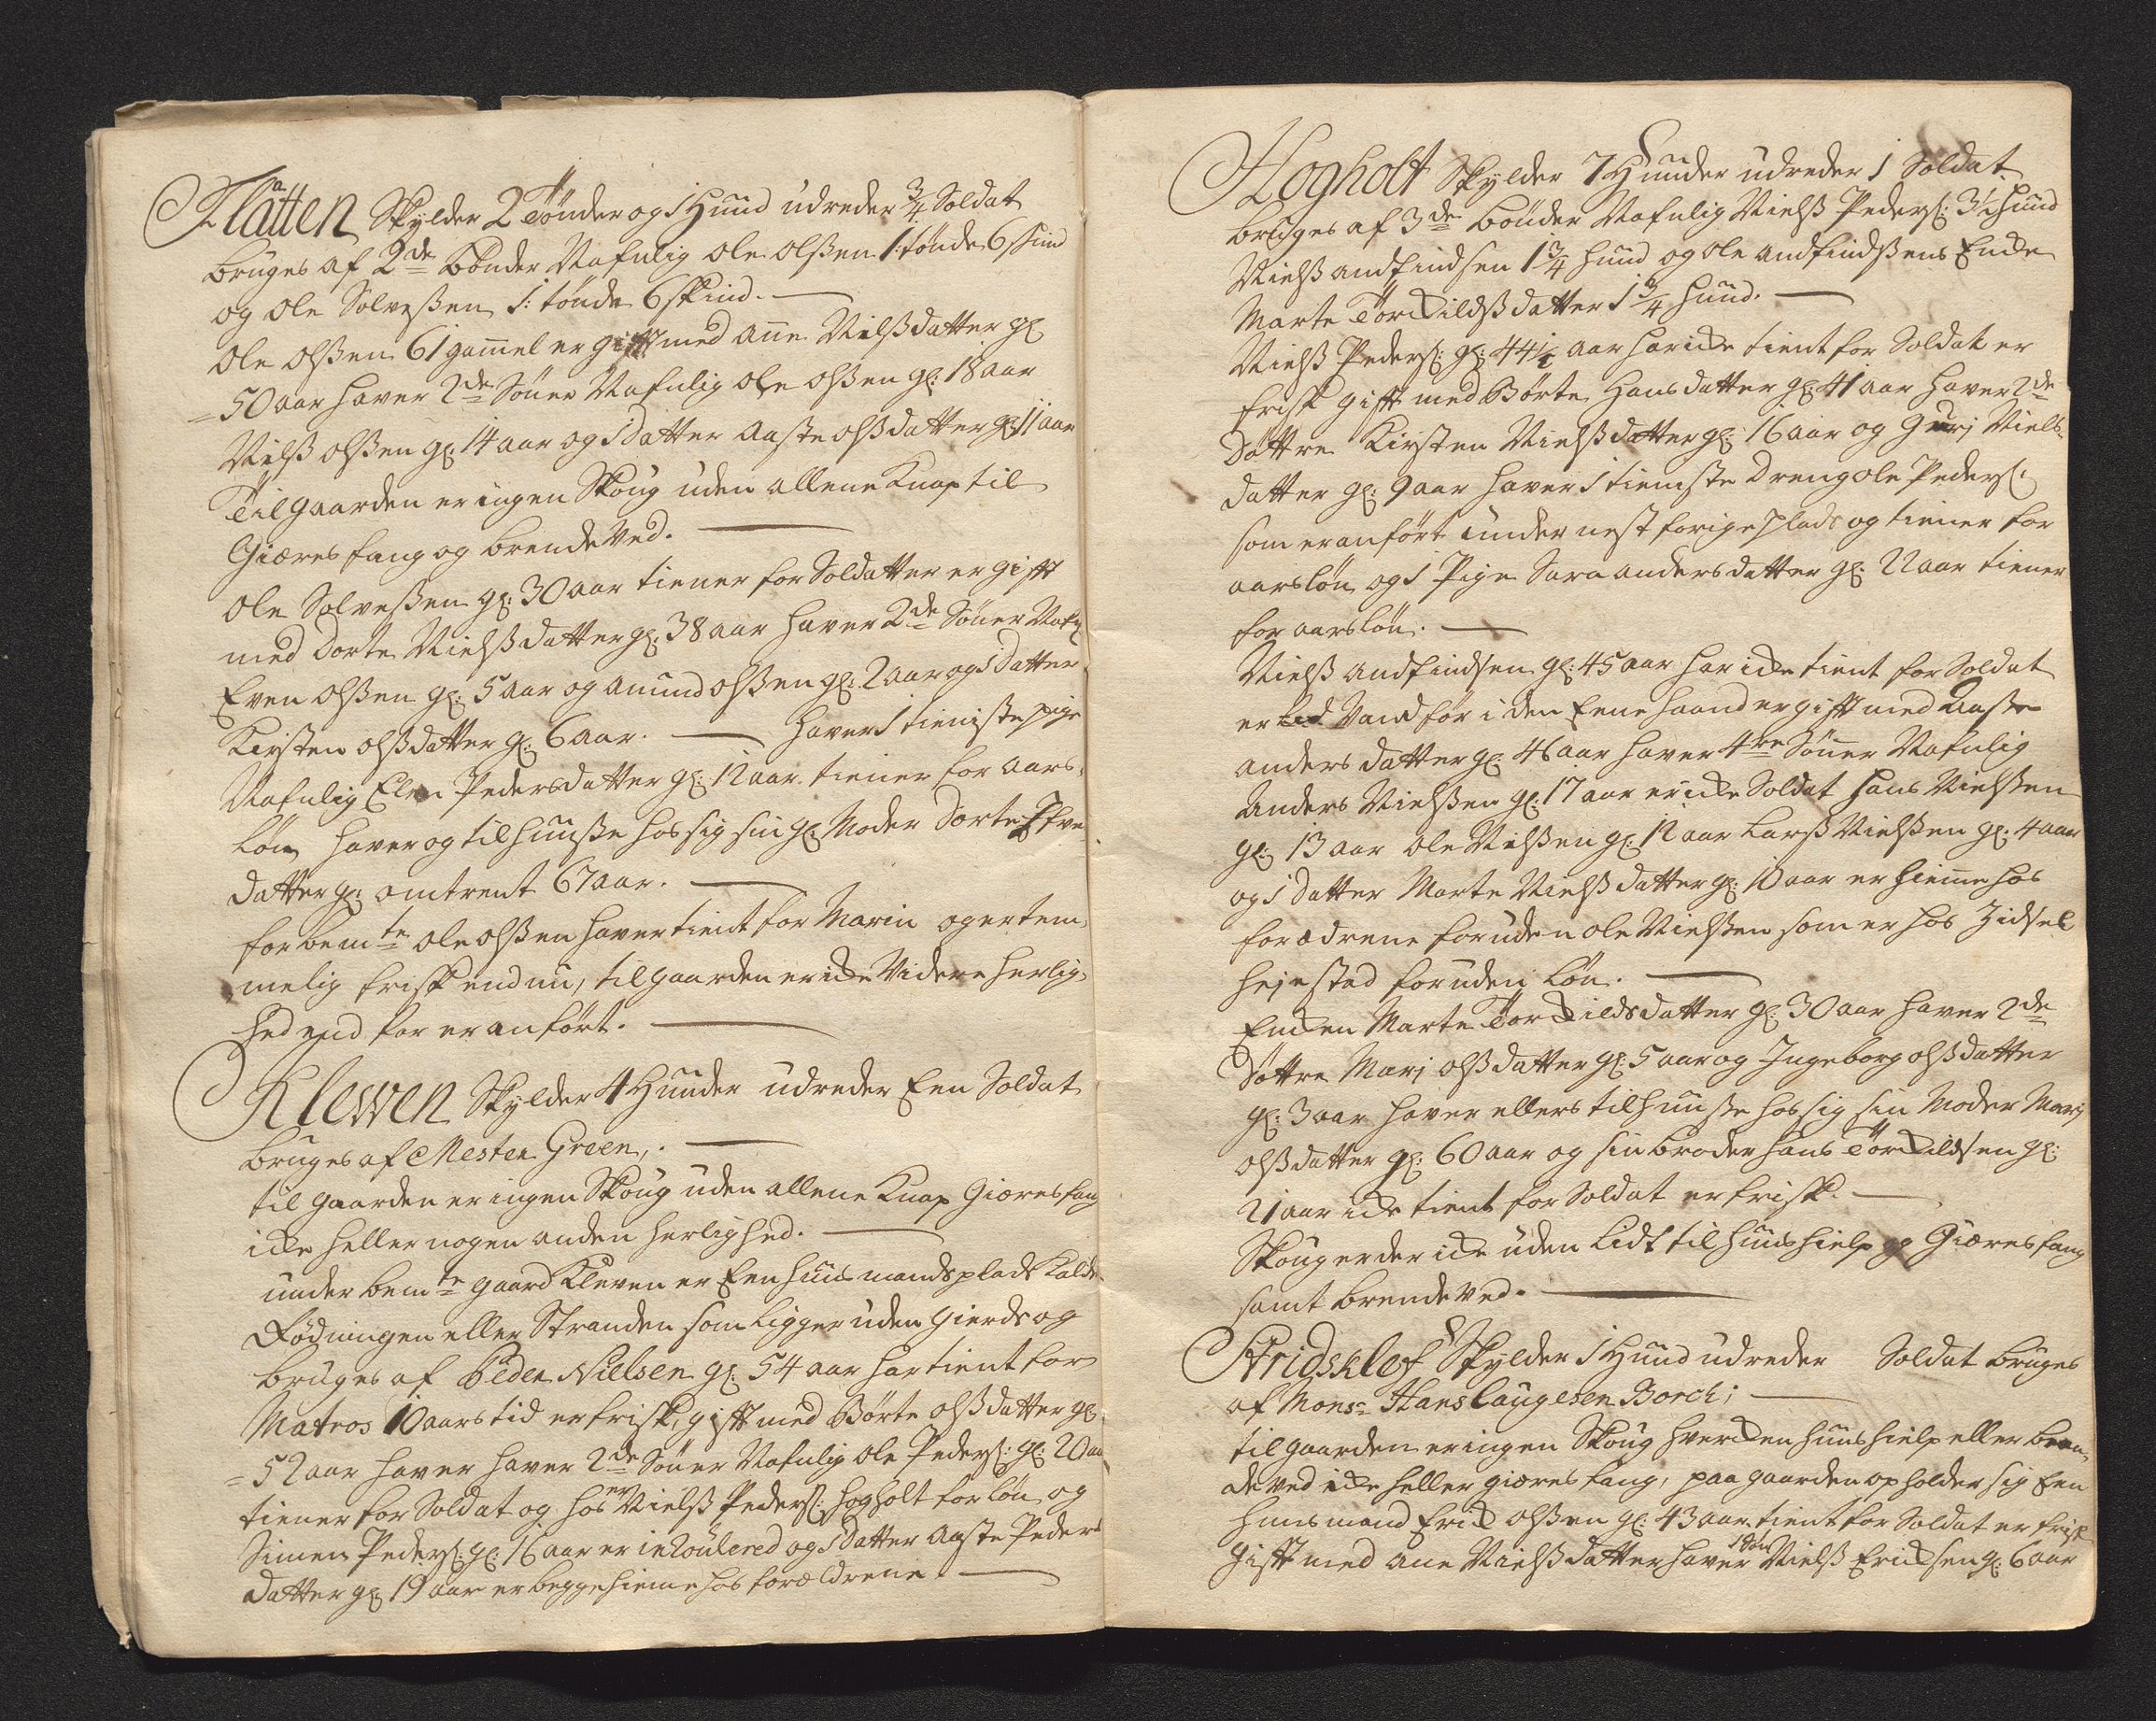 Flåtten Skylder 2 Tönder og 1 Huud udreder 3/4 Soldat
bruges af 2de bönder Nafnlig Ole Olßen 1: tönde 6 skind
og Ole Solveßen 1: tönde 6 skind.
Ole Olßen 61 gammel er gift med Anne Nielßdatter gl
= 50 aar haver 2de Sönner Nafnlig Ole Olßen gl: 18 aar
Nielß Olßen gl: 14 aar og 1 datter Aaste Olßdatter gl: 11 aar
Til gaarden er ingen Skoug uden allene Knap til
Giæresfang og brende Ved.
Ole Solveßen gl: 30 aar tiener for Soldatter er gift
med Dorte Nielßdatter gl: 38 aar haver 2de Sönner Nafn
Even Olßen gl: 5 aar og Anund Olßen gl: 2 aar og 1 datter
Kirsten Olßdatter gl: 6 aar. haver 1 tieniste pige
Nafnlig Elen Pedersdatter gl: 12 aar tiener for aars,
lön haver og til huuße hos sig sin gl Moder Dorte
datter gl: omtrent 67 aar.
forbemte Ole Olßen haver tient for Marin og er tem,
melig frisk endnu, til gaarden er icke Videre herlig,
hed end for er anfört.
Klewen Skylder 4 Huuder udreder Een Soldat
bruges af Mester Green,.
til gaarden er ingen Skoug uden allene Knap Giæresfang
icke heller nogen anden herlighed.
under bemte gaard Kleven er Een huusmands plads Kaldes
Födningen eller Stranden som ligger uden gierds og
bruges af Peder Nielsen gl: 54 aar har tient for
Matros 10 aars tid er frisk, gift med Börte Olßdatter gl
= 52 aar haver haver 2de Sönner Nafnlig Ole Peders: gl: 20 aar
tiener for Soldat og er hos Nielß Peders: Hogholt for lön og
Simen Peders: gl: 16 aar er inroulered og 1 datter Aaste Peders
datter gl: 19 aar er begge hieme hos forældrene.
Hogholt Skylder 7 Huuder udreder 1 Soldat
bruges af 3de bönder Nafnlig Nielß Peders: 3 1/2 huud
Nielß Andfindsen 1 3/4 huud og Ole Andfindßens Encke
Marte Törckildßdatter 1 3/4 huud.
Nielß Peders: gl: 44 1/2 aar har icke tient for Soldat er
frisk gift med Börte Hansdatter gl: 41 aar haver 2de
döttre Kirsten Nielßdatter gl: 16 aar og Gurj Niels-
datter gl: 9 aar haver 1 tieniste Dreng Ole Peders:
som er anfört under nest forige plads og tiener for
aarslön og 1 Pige Sara Andersdatter gl: 22 aar tiener
for aarslön.
Nielß Andfindsen gl: 45 aar har icke tient for Soldat
er Vandför i den Eene haand er gift med Aaste
Andersdatter gl: 46 aar haver 4re Sönner Nafnlig
Anders Nielßen gl: 17 aar er icke Soldat Hans Nielßen
gl: 13 aar Ole Nielßen gl: 12 aar Larß Nielßen gl: 4 aar
og 1 datter Marte Nielßdatter gl: 10 aar er hieme hos
forældrene foruden Ole Nielßen som er hos Zidsel
Hejestad foruden lön.
Encken Marte Torckildsdatter gl: 30 aar haver 2de
döttre Marj Olßdatter gl: 5 aar og Ingeborg Olßdatter
gl: 3 aar haver ellers til huuße hos sig sin Moder Marj
Olßdatter gl: 60 aar og sin broder Hans Törckildsen gl:
21 aar icke tient for Soldat er frisk.
Skoug er der icke uden lidt til huushielp og Giæresfang
samt brende Ved.
Stridsklef Skylder 1 Huud udreder Soldat bruges
af Monsr Hans Laugesen Borch;
til gaarden er ingen Skoug hvercken huushielp eller bren,
de ved icke heller giæresfang, paa gaarden opholder sig Een
huusmand Erick Olßen gl: 43 aar tient for Soldat er frisk
gift med Ane Nielßdatter haver 1 Sön Nielß Ericksen gl: 6 aar